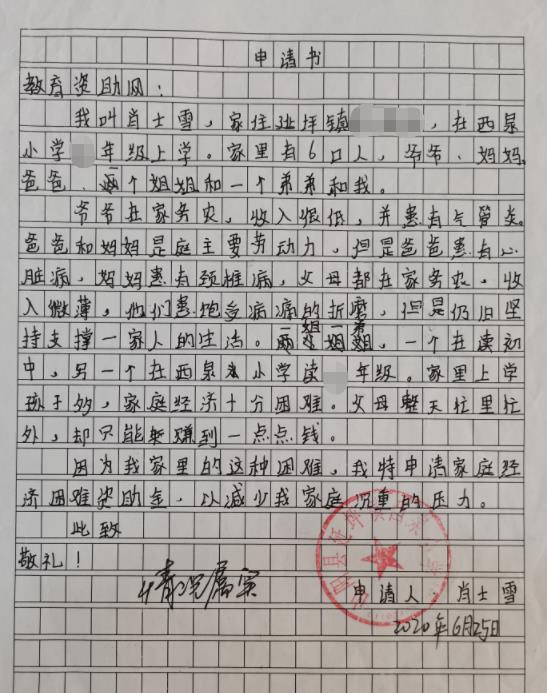 申请书
教育资助网：
我叫肖士雪，家住延坪镇，在西泉
小学 年级上学。家里有6口人，爷爷、妈妈、
爸爸、两个姐姐和一个弟弟和我。
爷爷在家务农，收入很低，并患有气管炎。
爸爸和妈妈是庭主要劳动力，但是爸爸患有心
脏病，妈妈患有颈椎病，父母都在家务农，收
入微薄，他们患饱受病痛的折磨，但是仍旧坚
持支撑一家人的生活。一姐一弟，一个在读初
中，另一个在西泉小学读 年级。家里上学
孩子多，家庭经济十分困难。父母整天忙里忙
外，却只能赚到一点点钱。
因为我家里的这种困难，我特申请家庭经
济困难资助金，以减少我家庭沉重的压力。
此致
敬礼！
情况属实
申请人：肖士雪
2020年6月25日